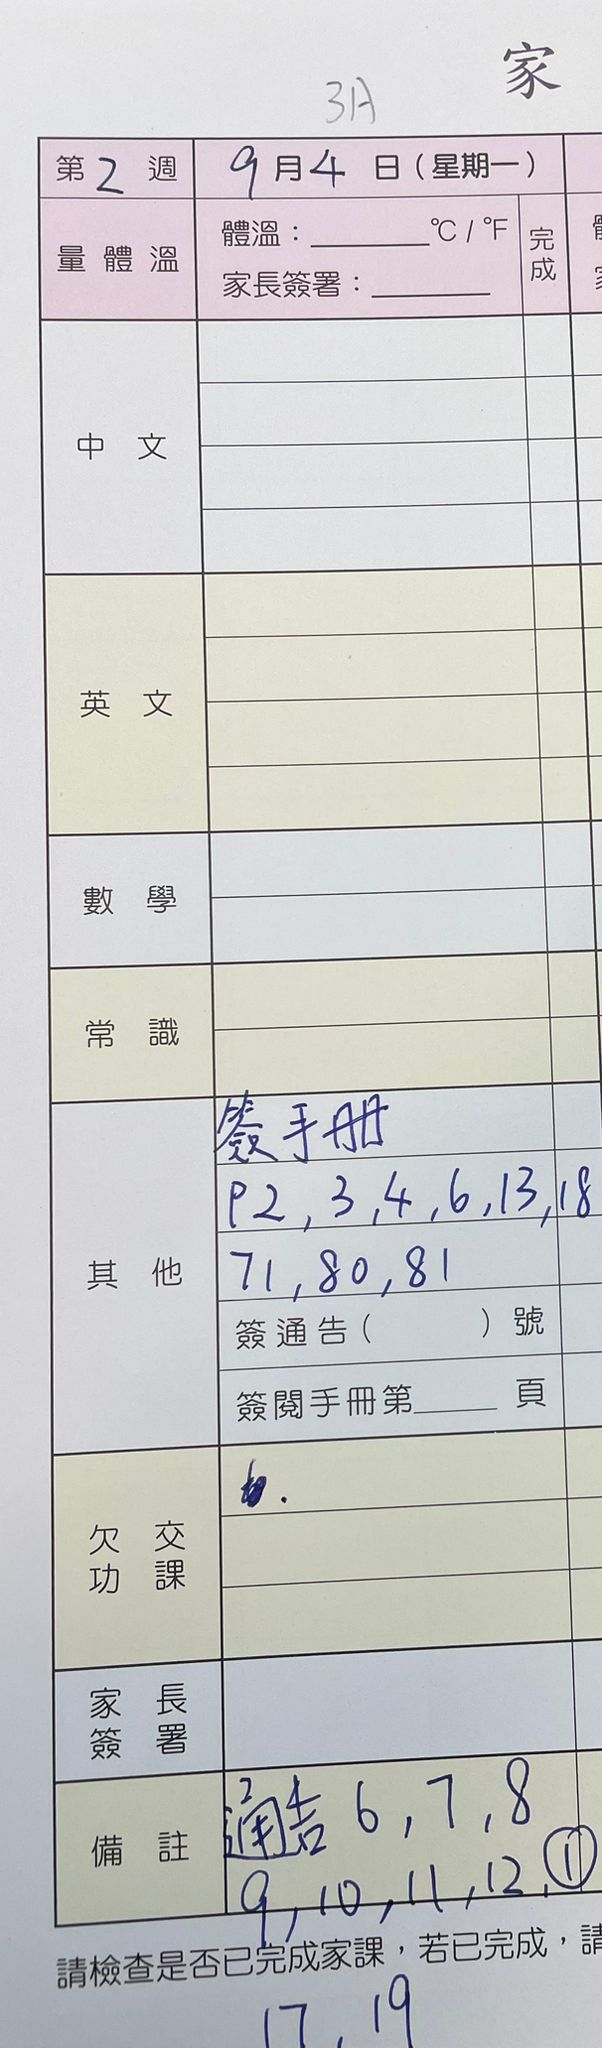 家
3A
第2週 9月4日(星期一)
量體溫 體溫:______℃/℉ 完成
家長簽署:______
中文
英文
數學
常識
其他
簽手冊
P2,3,4,6,13,18
71,80,81
簽通告( )號
簽閱手冊第____頁
欠交功課
家長簽署
備註
通告6,7,8
9,10,11,12,①
請檢查是否已完成家課,若已完成,請
17,19